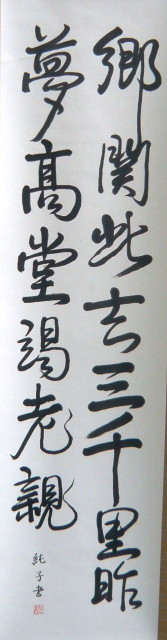 郷関此去三千里昨
夢高堂謁老親
純子書